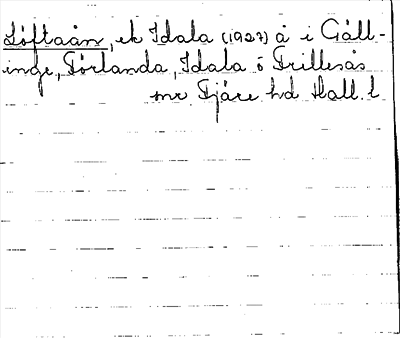 Löftaån, ek Idala (1927) å i Gäll-
inge, Förlanda, Idala o Frillesås
snr Fjäre hd Hall. l